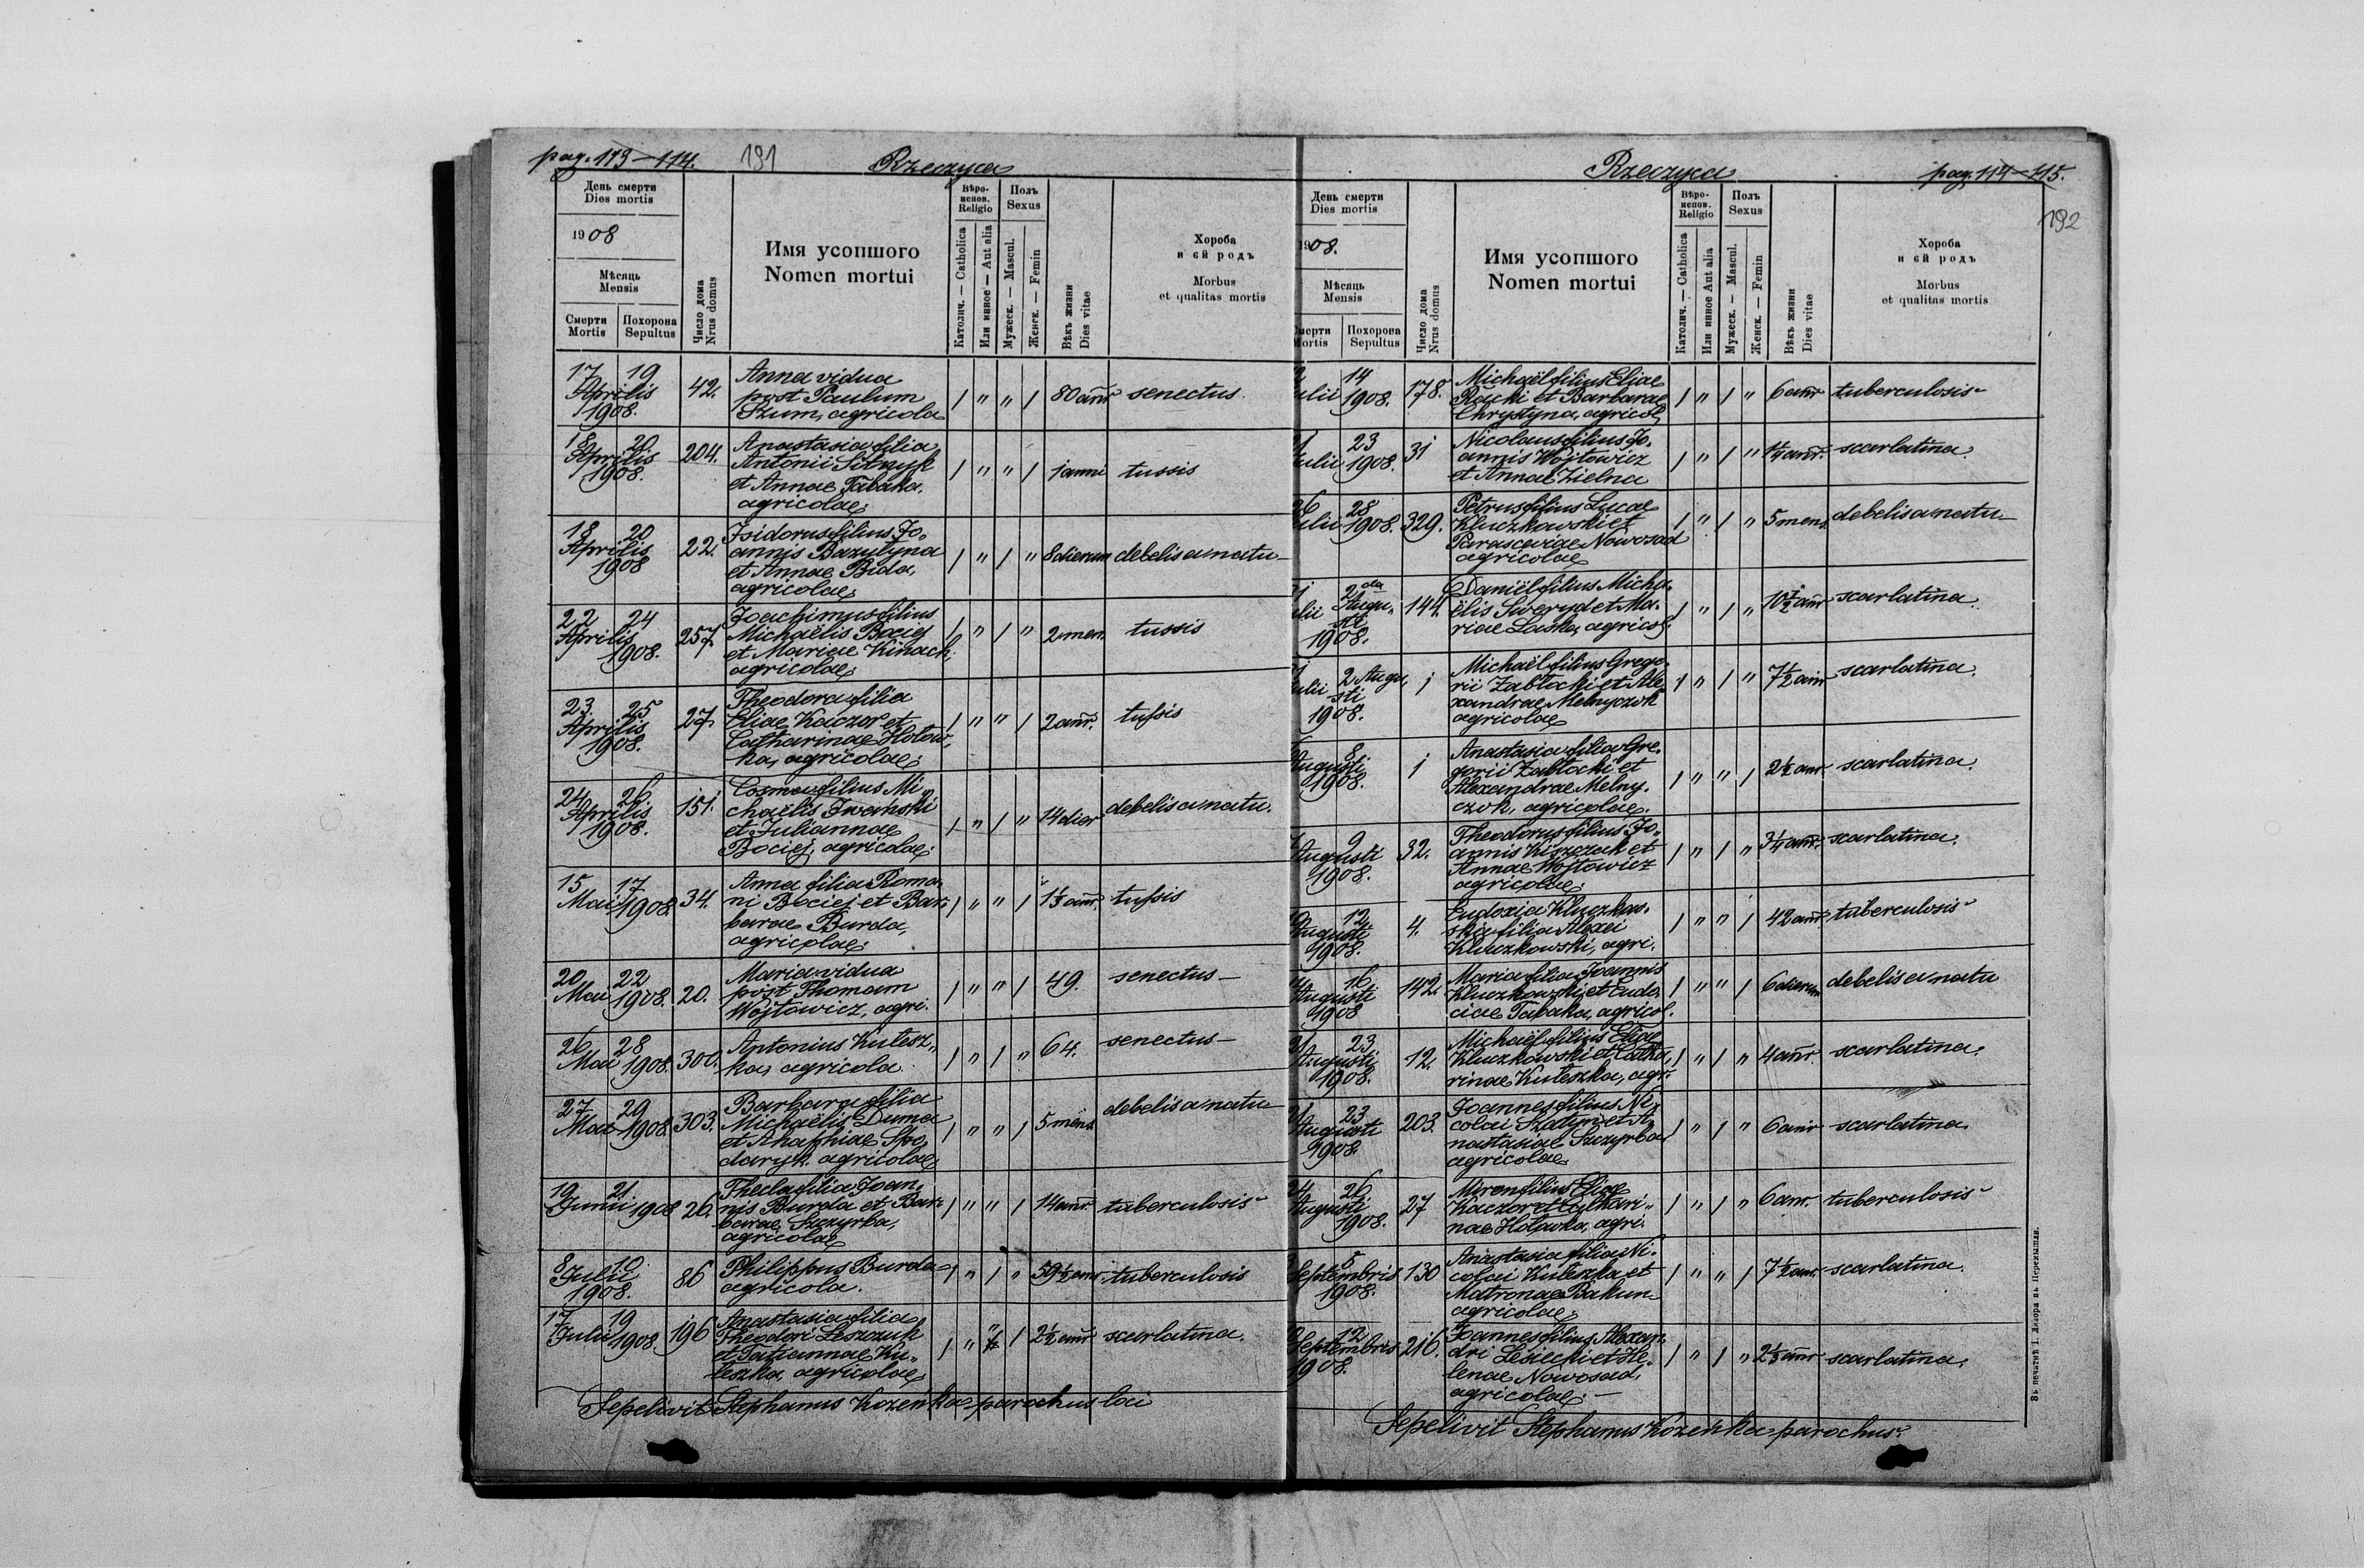 pag. 113-114. 191 Rzeczyca
День смерти
Dies mortis
1908
Мѣсяць
Mensis
Смерти
Mortis
Похорона
Sepultus
Число дома
Nrus domus
Имя усопшого
Nomen mortui
Вѣро-
испов.
Religio
Католич. — Catholica
Или инное — Aut alia
Полъ
Sexus
Мужеск. — Mascul.
Женск. — Femin
Вѣкъ жизни
Dies vitae
Хороба
и єй родъ
Morbus
et qualitas mortis
17 19
Aprilis
1908.
42.
Anna vidua
post Paulum
Szum, agricola
/ " " / 80 ann senectus
18 20
Aprilis
1908.
204.
Anastasia filia
Antonii Sitnyk
et Annae Tabaka,
agricolae;
/ " " / 1 anni tussis
18 20
Aprilis
1908
22.
Isidorus filius Jo-
annis Bazylyna
et Annae Bida,
agricolae;
/ " / " 8 dierum debelis a natu
22 24
Aprilis
1908.
257
Joachimus filius
Michaëlis Bociej
et Mariae Kinach,
agricolae;
/ " / " 2 men tussis
23. 25
Aprilis
1908.
27
Theodora filia
Eliae Kaczor et
Catharinae Holow,
ka, agricolae;
/ " " / 2 ann. tussis
24 26
Aprilis
1908.
151.
Cosma filius Mi-
chaëlis Iwanski
et Juliannae
Bociej, agricolae;
/ " / " 14 dier debelis a natu.
15 17
Maii 1908.
34.
Anna filia Roma,
ni Bociej et Bar-
barae Burda,
agricolae;
/ " " / 1⅓ ann. tussis
20 22
Maii 1908.
20.
Maria vidua
post Thomam
Wojtowicz, agri.
/ " " / 49. senectus
26 28
Maii 1908.
300.
Antonius Kulesz,,
ka, agricola
/ " / " 64. senectus
27 29
Maii 1908.
303.
Barbara filia
Michaëlis Duma
et Ahaphiae Spo,
daryk. agricolae;
/ " " / 5 mens debelis a natu
19 21
Junii 1908
26.
Thecla filia Joan,
nis Burda et Bar-
barae Szczyrba,
agricolae
/ " " / 14 ann. tuberculosis
8 10
Julii
1908.
86
Philippus Burda
agricola.
/ " / " 59½ ann tuberculosis
17 19
Julii 1908.
196
Anastasia filia
Theodori Leszczuk
et Tatiannae Ku,,
leszka, agricolae;
/ " " / 2½ ann scarlatina.
Sepelivit Stephanus Kozenko parochus loci
Rzeczyca pag. 114-115.
192
День смерти
Dies mortis
1908.
Мѣсяць
Mensis
Смерти
Mortis
Похорона
Sepultus
Число дома
Nrus domus
Имя усопшого
Nomen mortui
Вѣро-
испов.
Religio
Католич. — Catholica
Или инное Aut alia
Полъ
Sexus
Мужеск. — Mascul.
Женск. — Femin
Вѣкъ жизни
Dies vitae
Хороба
и єй родъ
Morbus
et qualitas mortis
14
ulii 1908.
178.
Michaël filius Eliae
Racki et Barbarae
Chrystyna, agricol,
/ " / " 6 ann tuberculosis
23
ulii 1908.
31
Nicolaus filius Jo-
annis Wojtowicz
et Annae Zielna
/ " / " 1¼ ann. scarlatina.
26 28
ulii 1908.
329.
Petrus filius Lucae
Kluczkowski et
Parasceviae Nowosad
agricolae
/ " / " 5 mens debelis a natu
2da
ulii Augu,,
sti
1908.
144.
Daniël filius Micha-
ëlis Sweryd et Ma-
riae Laska, agricol.
/ " / " 10½ ann scarlatina.
2 Augu,
ulii sti
1908.
1
Michaël filius Grego-
rii Zabłocki et Ale
xandrae Melnyczok
agricolae
/ " / " 7½ ann scarlatina.
8
Augusti
1908.
1
Anastasia filia Gre-
gorii Zabłocki et
Alexandrae Melny-
czok, agricolae.
/ " " / 2½ ann. scarlatina.
9
Augusti
1908.
32.
Theodorus filius Jo,,
annis Kiszczak et
Annae Wojtowicz
agricolae;
/ " / " 3¼ ann. scarlatina.
12
Augusti
1908.
4.
Eudoxia Kluczkow-
ska filia Alexei
Kluczkowski, agri.
/ " " / 42 ann. tuberculosis
16
Augusti
1908
142.
Maria filia Joannis
Kluczkowski et Eudo,
ciae Tabaka, agricol.
/ " " / 6 dierum debelis a natu
21 23
Augusti
1908.
12.
Michaël filius Eliae
Kluczkowski et Catha,
rinae Kuleszka, agr.
/ " / " 4 ann. scarlatina.
21 23
Augusti
1908.
203.
Joannes filius Ni-
colai Szatyn et A-
nastasiae Szczyrba
agricolae
/ " / " 6 ann scarlatina.
24 26
Augusti
1908.
27
Miron filius Eliae
Kaczor et Cathari,,
nae Holowka, agri.
/ " / " 6 ann. tuberculosis
5
Septembris
1908.
130
Anastasia filia Ni-
colai Kuleszka et
Matronae Bakun
agricolae;
/ " " / 7½ ann. scarlatina.
12
Septembris
1908.
216.
Joannes filius Alexan,
dri Lesiecki et He-
lenae Nowosad,
agricolae;
/ " / " 2⅓ ann scarlatina.
Sepelivit Stephanus Kozenko parochus.